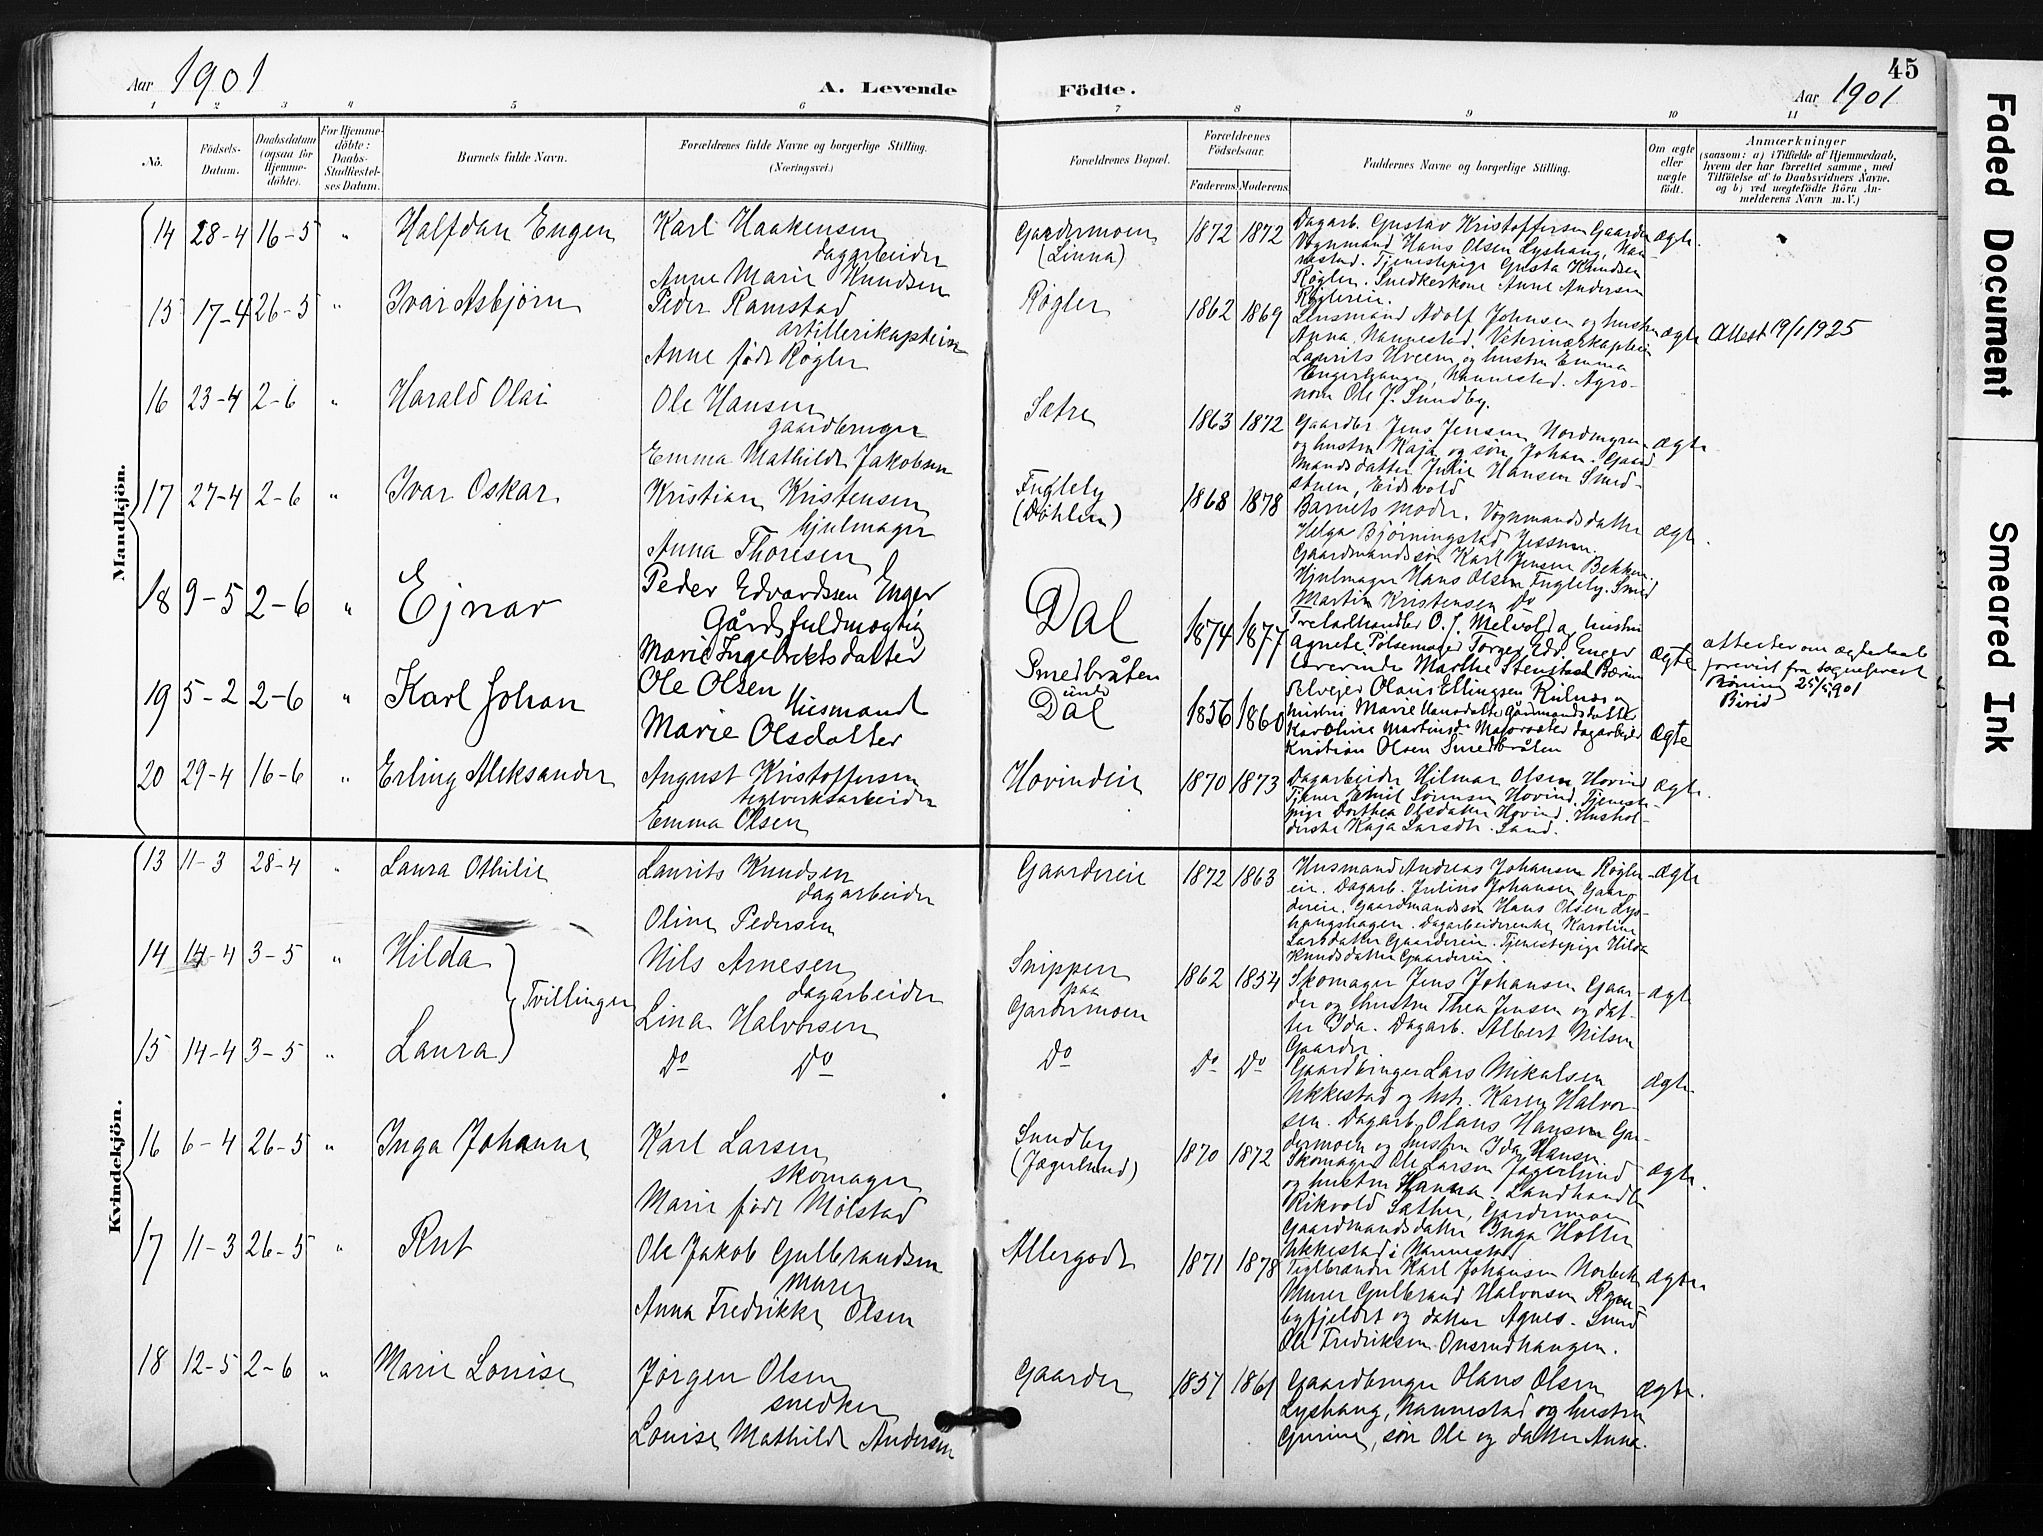 Aar 1901
A. Levende
Fødte.
45
Aar 1901
1 2 3 4 5 6 7 8 9 10 11
No.
Fødsels-
Datum.
Daabsdatum
(ogsaa for
Hjemme-
døbte).
For Hjemme-
døbte:
Daabs-
Stadfæstel-
ses Datum.
Barnets fulde Navn.
Forældrenes fulde Navne og borgerlige Stilling.
(Næringsvei.)
Forældrenes Bopæl.
Forældrenes
Fødselsaar.
Faderens.
Moderens.
Faddernes Navne og borgerlige Stilling.
Om ægte
eller
uægte
født.
Anmærkninger
(saasom: a) i Tilfælde af Hjemmedaab,
hvem der har forrettet samme, med
Tilføielse af to Daabsvidners Navne,
og b) ved uægtefødte Børn An-
melderens Navn m.V.)
Mandkjøn.
14 28-4 16-5 " Halfdan Engen
Karl Haakensen
dagarbeider
Anne Marie Knudsen
Gardermoen
(Linna)
1872 1872
Dagarb. Gustav Kristoffersen Gaarder
Vognmand Hans Olsen Lyshaug, Nan-
nestad. Tjenestepige Gusta Knudsen
Røgler. Snedkerkone Anne Andersen
Røglereie.
ægte
15 17-4 26-5 " Ivar Asbjørn
Peder Ramstad
artillerikaptein
Anne født Røgler
Røgler
1862 1869
Lensmand Adolf Johnsen og hustru
Anna, Nannestad. Veterinærkaptein
Laurits Hveem og hustru Emma
Engerhaugen, Nannestad. Agro-
nom Ole J. Sundby.
ægte
Attest 19/1 1925
16 23-4 2-6 " Harald Olai
Ole Hansen
gaardbruger
Emma Mathilde Jakobsen
Sætre
1863 1872
Gaardbr. Jens Jensen Nordmyren
og hustru Kaja og søn Johan. Gaard
mandsdatter Julie Hansen Smed-
stuen, Eidsvold
ægte
17 27-4 2-6 " Ivar Oskar
Kristian Kristensen
hjulmager
Anna Thoresen
Fugleby
(Døhlen)
1868 1878
Barnets moder. Vognmandsdatter
Helga Bjørningstad Jessnen.
Gaardmandssøn Karl Jensen Bekken.
Hjulmager Hans Olsen Fugleby. Smed
Martin Kristensen Do
ægte
18 9-5 2-6 " Ejnar
Peder Edvardssen Enger
Gårdsfuldmægtig
Marie Ingebrektsdatter
Dal
1874 1877
Trelasthandler O. J. Melvold og hustru
Agnete. Pølsemager Torger Edv. Enger
Lærerinde Marthe Stenstad Bærum
ægte
attester om ægteskab
forevist fra sognepræst
25/5 1901
Birid
19 5-2 2-6 " Karl Johan
Ole Olsen
Husmand
Marie Olsdatter
Smedbråten
und.
Dal
1856 1860
Selvejer Olaus Ellingsen Rulnæs og
hustru Marie Hansdatter Gårdmandsdatter
Karoline Martinsd. dagarbejder
Kristian Olsen Smedbråten
ægte
20 29-4 16-6 " Erling Aleksander
August Kristoffersen
teglverksarbeider
Emma Olsen
Hovindeie
1870 1873
Dagarbeider Hilmar Olsen Hovind
Tjener Emil Sørensen Hovind. Tjeneste-
pige Dorthea Olsdatter Hovind. Hushol-
derske Kaja Larsdtr. Sand.
ægte.
Kvindekjøn.
13 11-3 28-4 " Laura Othilie
Laurits Knudsen
dagarbeider
Oline Pedersen
Gaardereie
1872 1863
Husmand Andreas Johansen Røgler-
eie. Dagarb. Julius Johansen Gaar-
dereie. Gaardmandssøn Hans Olsen Lys-
haugshagen. Dagarbeiderenke Karoline
Larsdatter Gaardereie. Tjenestepige Hilda
Knudsdatter Gaardereie.
ægte
14 14-4 3-5 " Hilda
Tvillinger
Nils Arnesen
dagarbeider
Lina Halvorsen
Snippen
paa
Gardermoen
1862 1854
Skomager Jens Johansen Gaar-
der og hustru Thea Jensen og dat-
ter Ida. Dagarb. Albert Nilsen
Gaarder
ægte
15 14-4 3-5 " Laura
Do Do
Do
Do Do
Gaardbruger Lars Mikalsen
Ukkestad og hstr. Karen Halvor-
sen. Dagarb. Olaus Hansen Gar-
dermoen og hustru Ida Hansen.
ægte
16 6-4 26-5 " Inga Johanne
Karl Larsen
skomager
Marie født Mølstad
Sundby
(Jægerlund)
1870 1872
Skomager Ole Larsen Jægerlund
og hustru Hanna. Landhandler
Rikvold Sæther, Gardermoen
Gaardmandsdatter Inga Holter
Ukkestad i Nannestad
ægte.
17 11-3 26-5 " Rut
Ole Jakob Gulbrandsen
Murer
Anna Fredrikke Olsen
Allergodt
1871 1878
Teglbrænder Karl Johansen Norbek
Murer Gulbrand Halvorsen Ryen-
byfjeldet og datter Agnes. Smed
Ole Fredriksen Onsrudhaugen.
ægte
18 12-5 2-6 " Marie Louise
Jørgen Olsen
snedker
Louise Mathilde Andersen
Gaarder
1857 1861
Gaardbruger Olaus Olsen
Lyshaug, Nannestad og hustru
Gurine, søn Ole og datter Anna.
ægte.
Faded Document
Smeared Ink